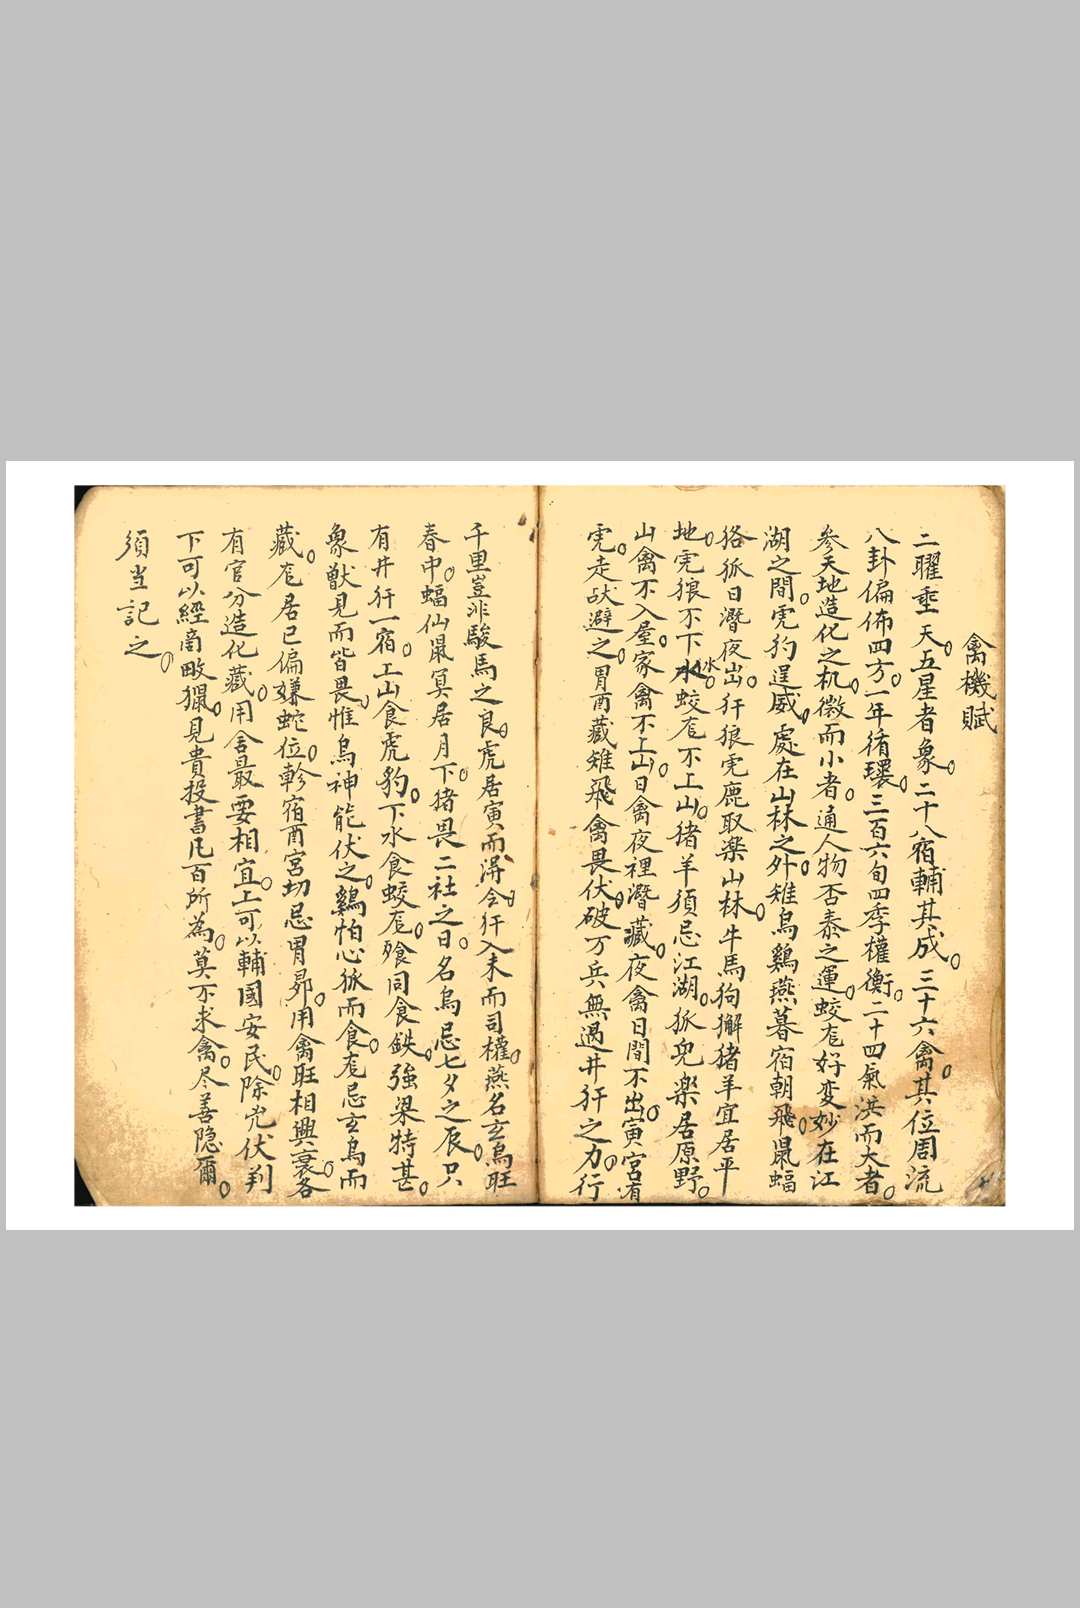 禽機賦
二曜垂天。五星者象。二十八宿輔其成。三十六禽。其位周流
八卦偏佈四方。一年循環。三百六旬四季權衡。二十四氣洪而大者。
参天地造化之机。微而小者。通人物否泰之運。蛟危好变妙在江
湖之間。虎豹逞威。處在山林之外。雉烏鷄燕暮宿朝飛。鼠蝠
狢狐日潛夜出。犴狼虎鹿取楽山林。牛馬狗獬猪羊宜居平
地。虎狼不下水。蛟危不上山。猪羊須忌江湖。狐兎楽居原野。
山禽不入屋。家禽不上山。日禽夜裡潛藏。夜禽日間不出。寅宮有
虎。走獸避之。胃酉藏雉飛禽畏伏。破万兵無過井犴之力。行
千里豈非駿馬之良。虎居寅而得令。犴入未而司權。燕名玄鳥旺
春中。蝠仙鼠冥居月下。猪畏二社之日。名烏忌七夕之辰。只
有井犴一宿。上山食虎豹。下水食蛟危。飱同食鉄。強梁特甚。
象獸見而皆畏。惟烏神能伏之。鷄怕心狐而食。危忌玄鳥而
藏。危居已偏嫌蛇位。軫宿酉宮切忌胃昴。用禽旺相興衰各
有官分造化藏。用含最要相宜。上可以輔國安民。除兇伏判
下可以經商畋獵。見貴投書凡百所為。莫不求禽。尽善隐爾。
須当記之。